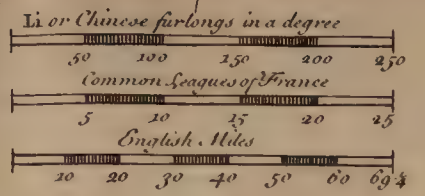 Li or Chinese furlongs in a degree
50 100 150 200 250
Common Leagues of France
5 10 15 20 25
English Miles
10 20 30 40 50 60 69¼